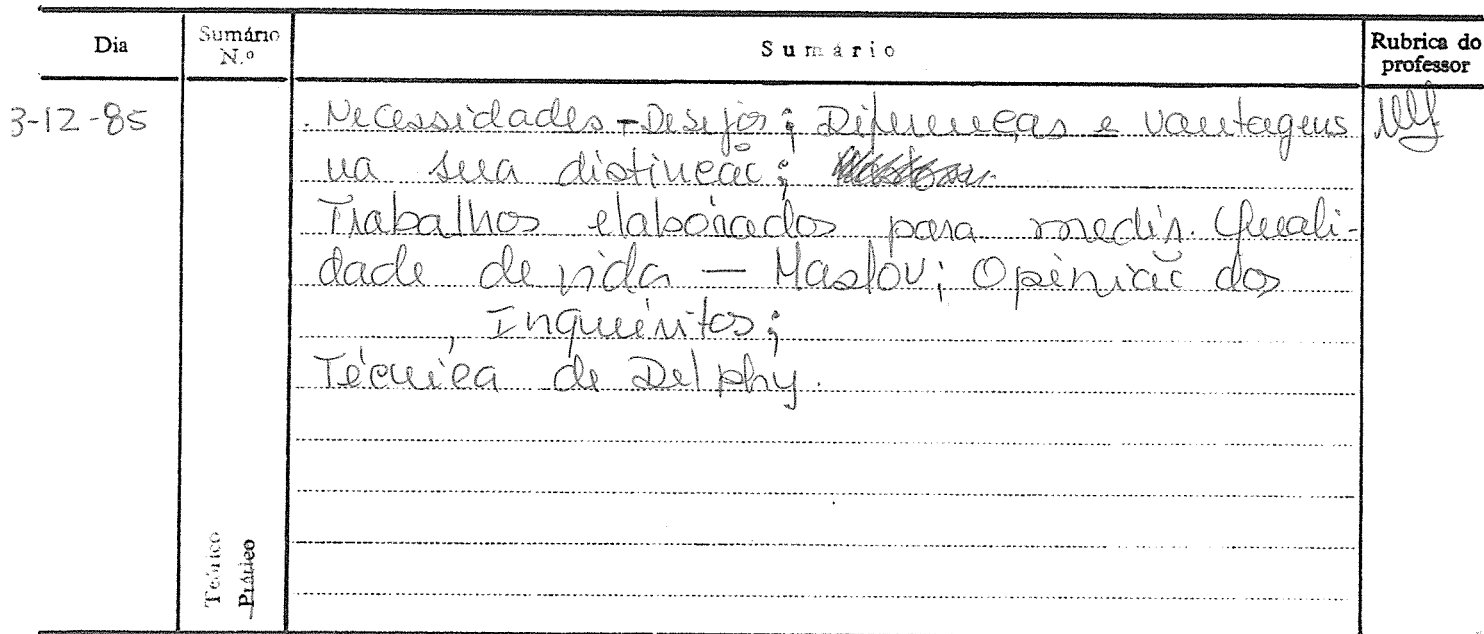 Dia
Sumário N.º
Sumário
Rubrica do professor
3-12-85
. Necessidades - Desejos; Diferenças e vantagens
na sua distinção;
Trabalhos elaborados para medir. Quali-
dade de vida — Maslov; Opinião dos
, Inquéritos;
Técnica de Delphy.
Teórico
Prático